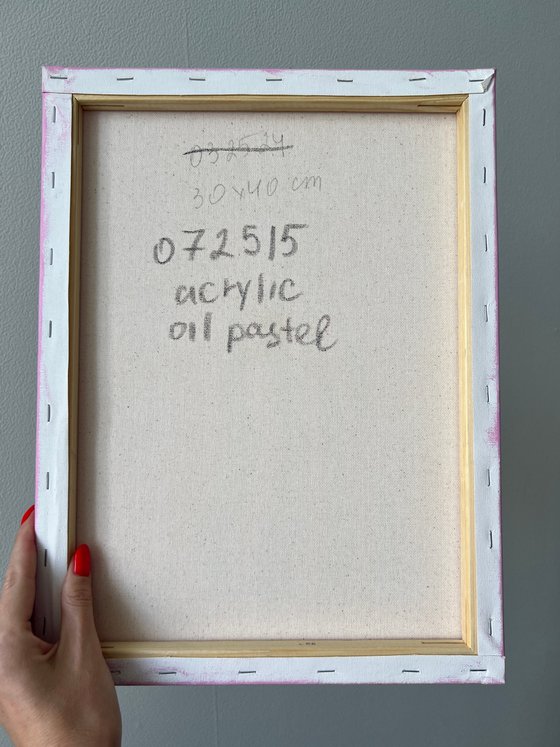 032524
30x40 cm
072515
acrylic
oil pastel